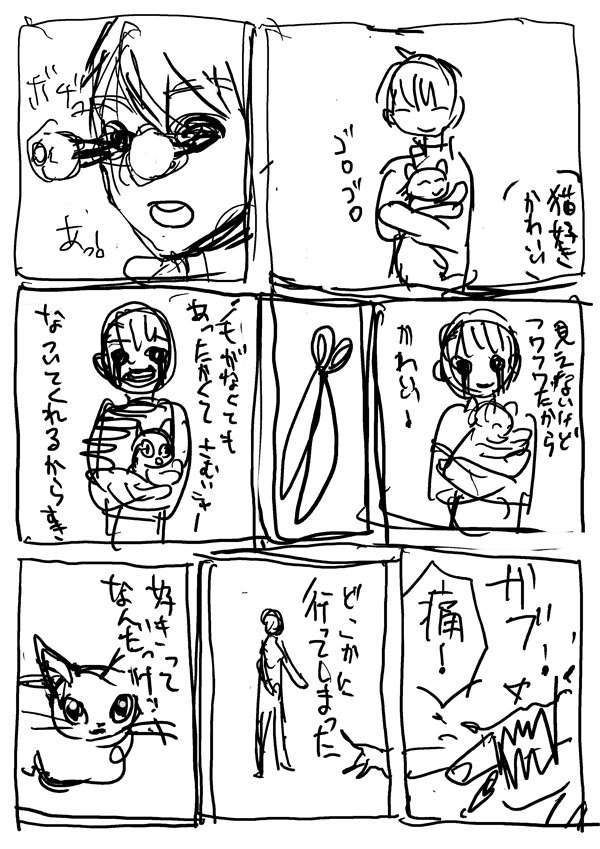 猫好き
かわいい
ゴロゴロ
ボギュ
あっ。
見えないけど
フワフワだから
かわいい
毛がなくても
あったかくて
なついてくれるからすき
ガブ!
痛!
どこかに
行ってしまった
好きって
なんだっけ